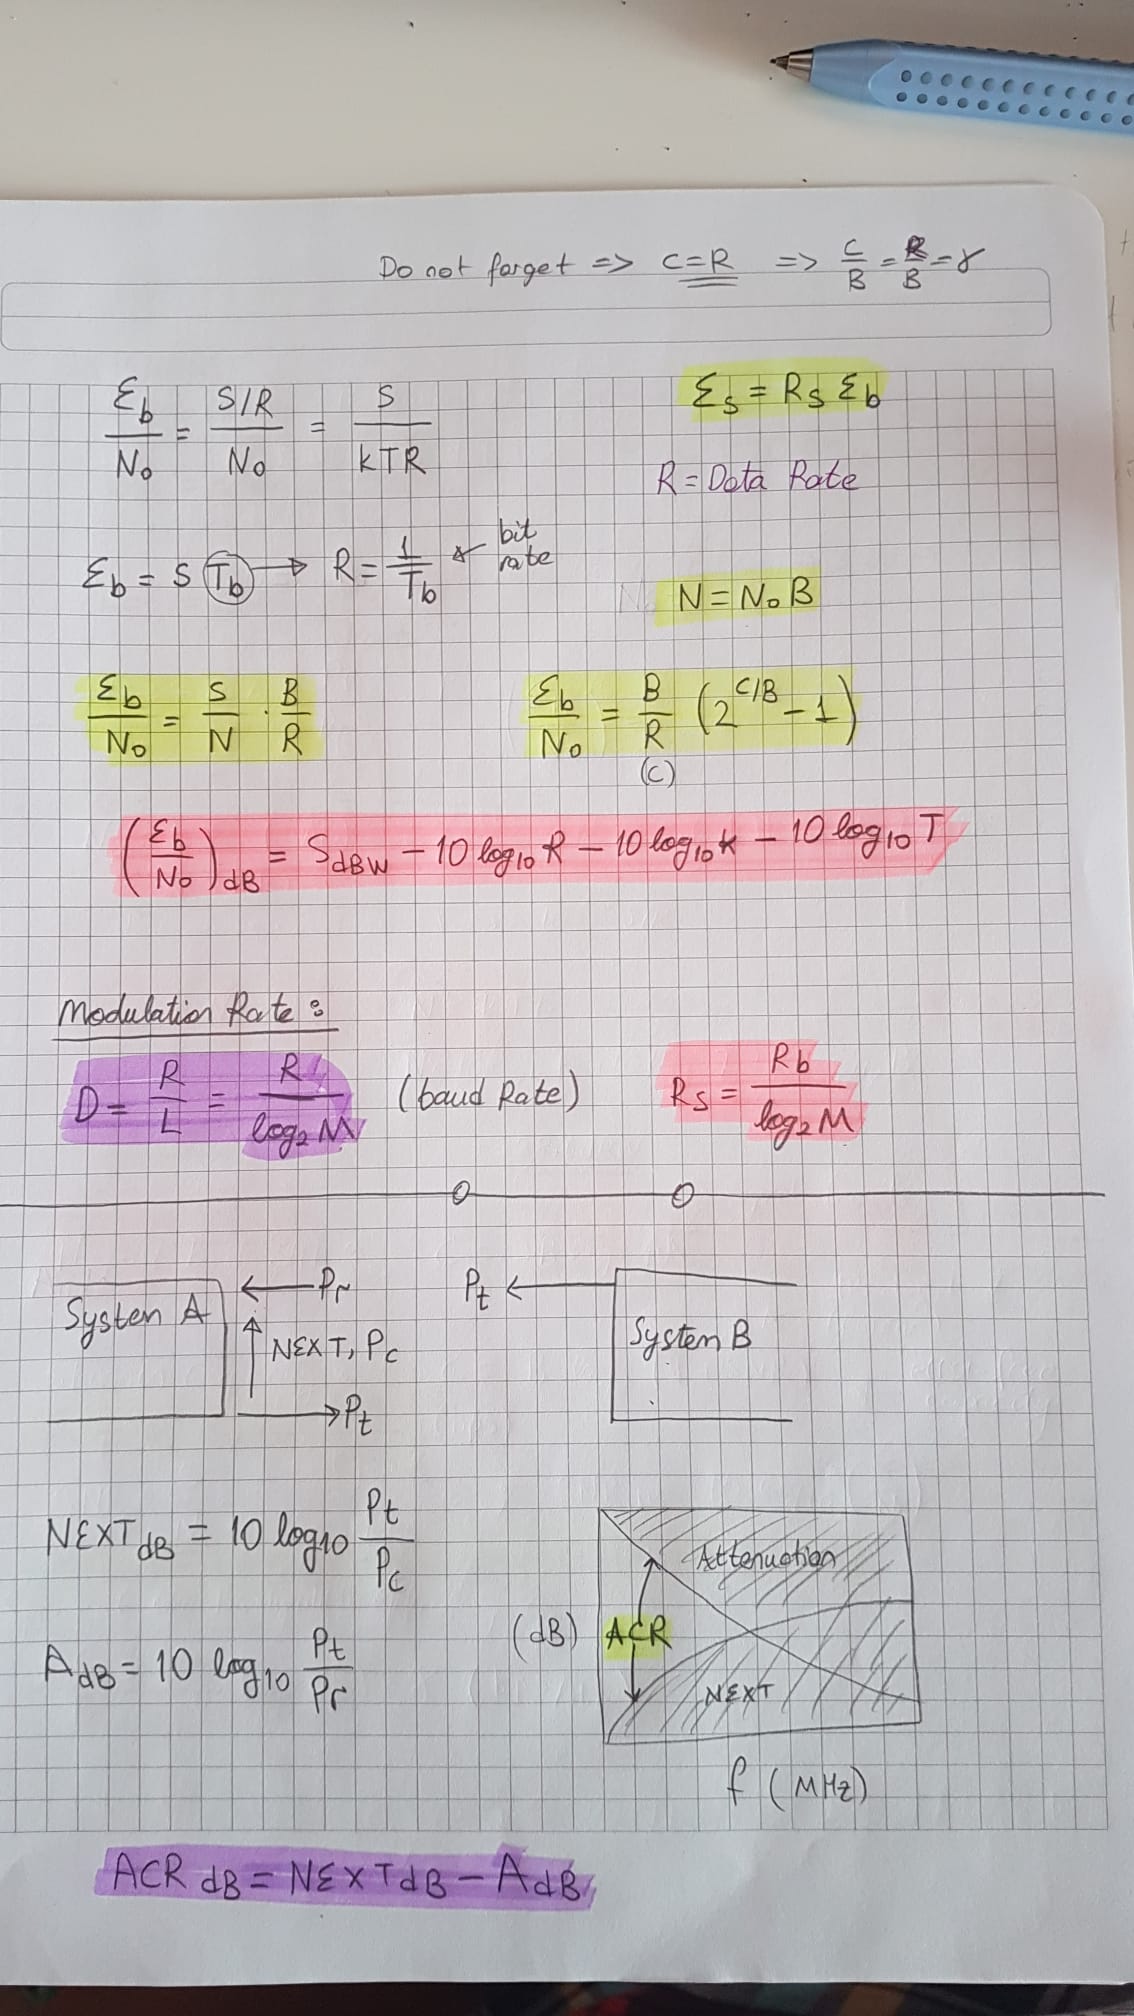 Do not forget => C=R => C/B = R/B = γ
Ɛb/No = S/R/No = S/kTR
Ɛs = Rs Ɛb
R = Data Rate
Ɛb = S Tb → R = 1/Tb ← bit rate
N = No B
Ɛb/No = S/N · B/R
Ɛb/No = B/R (2^C/B - 1)
(C)
(Ɛb/No)dB = SdBW - 10 log10 R - 10 log10 k - 10 log10 T
Modulation Rate :
D = R/L = R/log2 M (baud Rate)
Rs = Rb/log2 M
System A
← Pr
Pt ←
System B
↑ NEXT, Pc
→ Pt
NEXTdB = 10 log10 Pt/Pc
AdB = 10 log10 Pt/Pr
Attenuation
(dB) ACR
NEXT
f (MHz)
ACR dB = NEXTdB - AdB